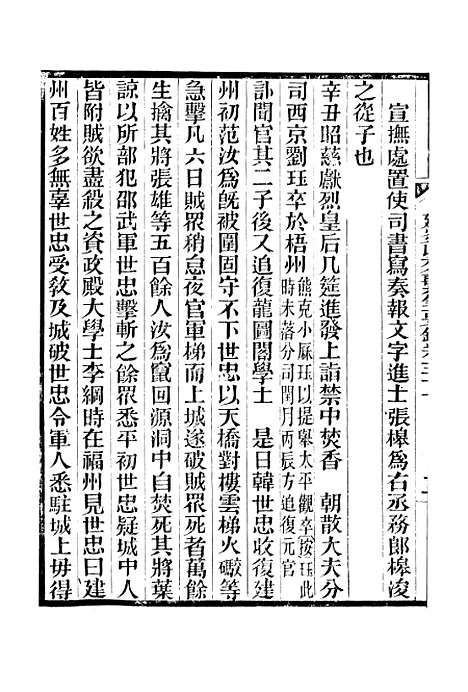 宣撫處置使司書寫奏報文字進士張㮣為右丞務郎㮣浚
之從子也
辛丑昭慈獻烈皇后几筵進發上詣禁中焚香　朝散大夫分
司西京劉珏卒於梧州熊克小厤珏以提舉太平觀卒按珏此
時未落分司閏月丙辰方追復元官
訃聞官其二子後又追復龍圖閣學士　是日韓世忠收復建
州初范汝為旣被圍固守不下世忠以天橋對樓雲梯火礮等
急擊凡六日賊眾稍怠夜官軍梯而上城遂破賊眾死者萬餘
生擒其將張雄等五百餘人汝為竄回源洞中自焚死其將葉
諒以所部犯邵武軍世忠擊斬之餘眾悉平初世忠疑城中人
皆附賊欲盡殺之資政殿大學士李綱時在福州見世忠曰建
州百姓多無辜世忠受敎及城破世忠令軍人悉駐城上毋得